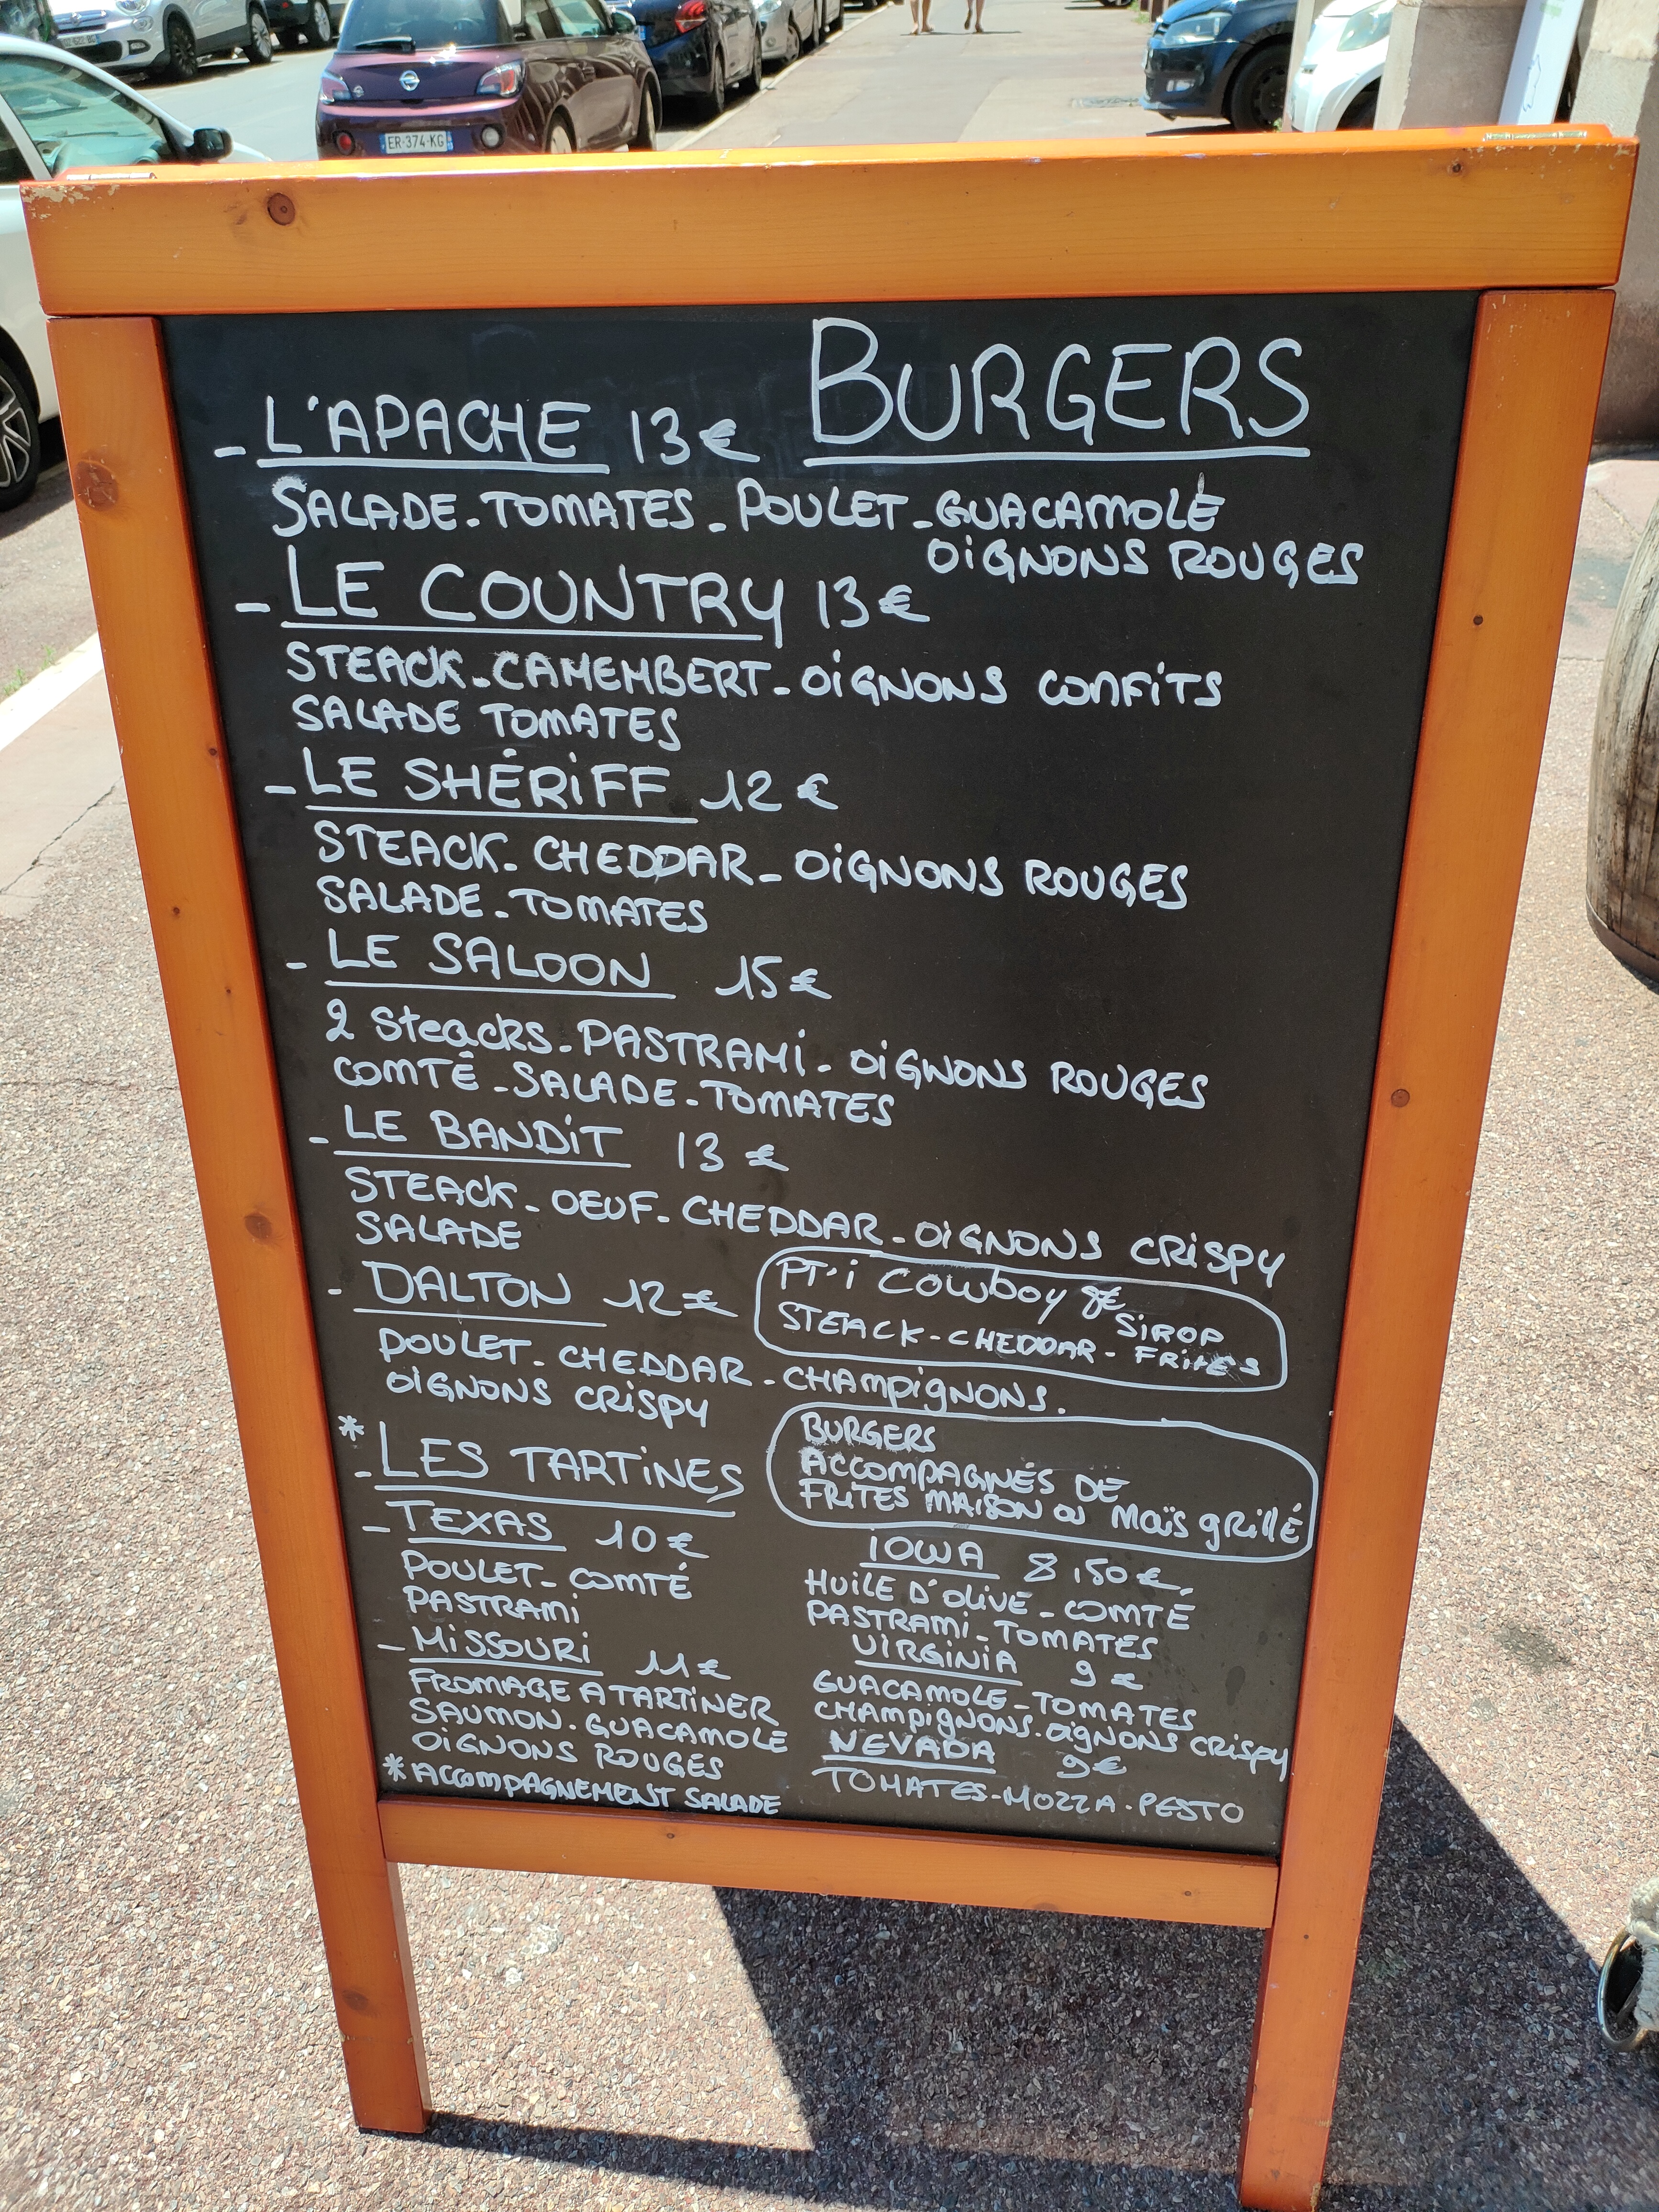 ER-374-KG
BURGERS
- L'APACHE 13€
SALADE-TOMATES-POULET-GUACAMOLE
OIGNONS ROUGES
- LE COUNTRY 13€
STEACK-CAMEMBERT-OIGNONS CONFITS
SALADE TOMATES
- LE SHÉRIFF 12€
STEACK-CHEDDAR-OIGNONS ROUGES
SALADE-TOMATES
- LE SALOON 15€
2 Steacks-PASTRAMI-OIGNONS ROUGES
COMTÉ-SALADE-TOMATES
- LE BANDIT 13€
STEACK-OEUF-CHEDDAR-OIGNONS CRISPY
SALADE
- DALTON 12€
POULET-CHEDDAR-CHAMPIGNONS.
OIGNONS CRISPY
PT'I COWBOY 8€
SIROP
STEACK-CHEDDAR-FRITES
BURGERS
ACCOMPAGNÉS DE
FRITES MAISON OU MAÏS GRILLÉ
*
- LES TARTINES
- TEXAS 10€
POULET-COMTÉ
PASTRAMI
- MISSOURI 11€
FROMAGE A TARTINER
SAUMON-GUACAMOLE
OIGNONS ROUGES
*ACCOMPAGNEMENT SALADE
IOWA 8,50€
HUILE D'OLIVE-COMTÉ
PASTRAMI-TOMATES
VIRGINIA 9€
GUACAMOLE-TOMATES
CHAMPIGNONS-OIGNONS CRISPY
NEVADA 9€
TOMATES-MOZZA-PESTO